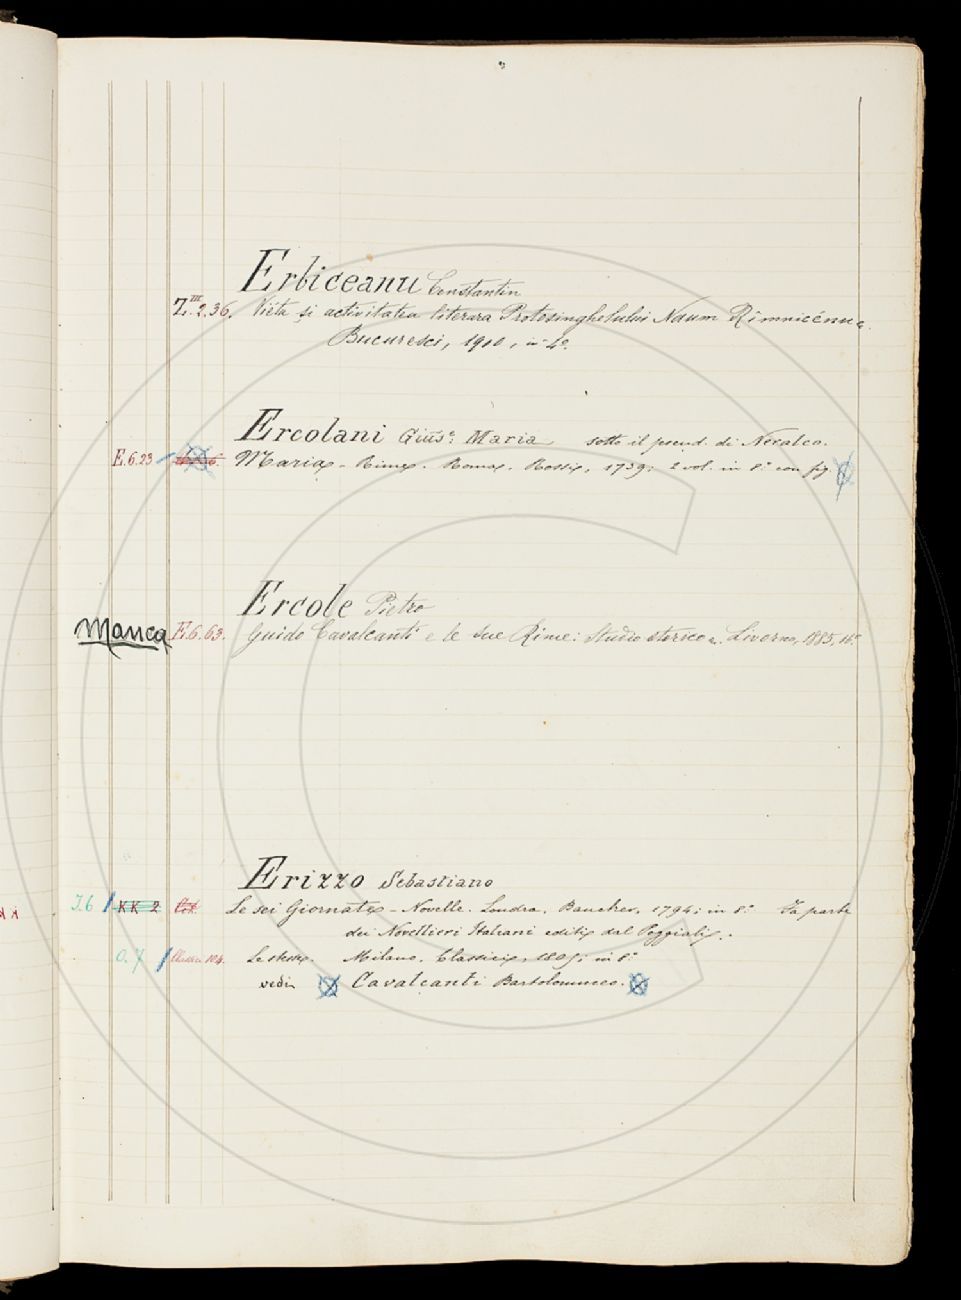 Erbiceanu Constantin
Z.III.2.36. Viéta și activitatea literara Protosinghelului Naum Rîmnicénu.
Bucuresci, 1900, in 4º.
Ercolani Gius.e Maria sotto il pseud. di Neralco.
E.6.23 Maria - Rime. Roma. Rossi, 1739; 2 vol. in 8.º con fig.
Ercole Pietro
Manca E.6.63. Guido Cavalcanti e le sue Rime: Studio storico. Livorno, 1885,
Erizzo Sebastiano
J.6 KK 2 Le sei Giornate - Novelle. Londra. Bancker, 1794; in 8.º Fa parte
dei Novellieri Italiani editi dal Poggiali.
O.7 Classici 104. Le stesse. Milano. Classici, in 8.º
vedi Cavalcanti Bartolommeo.